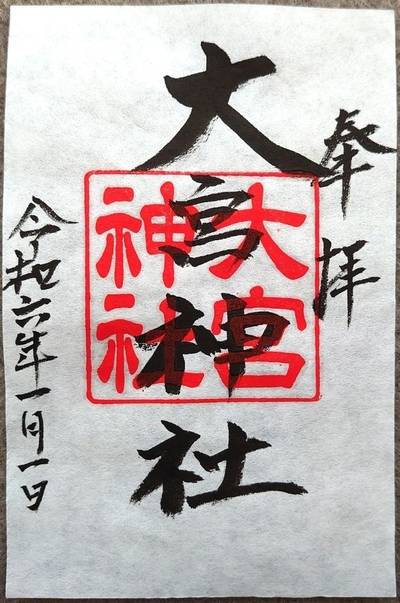 奉拝
大宮神社
大宮
神社
令和六年一月一日